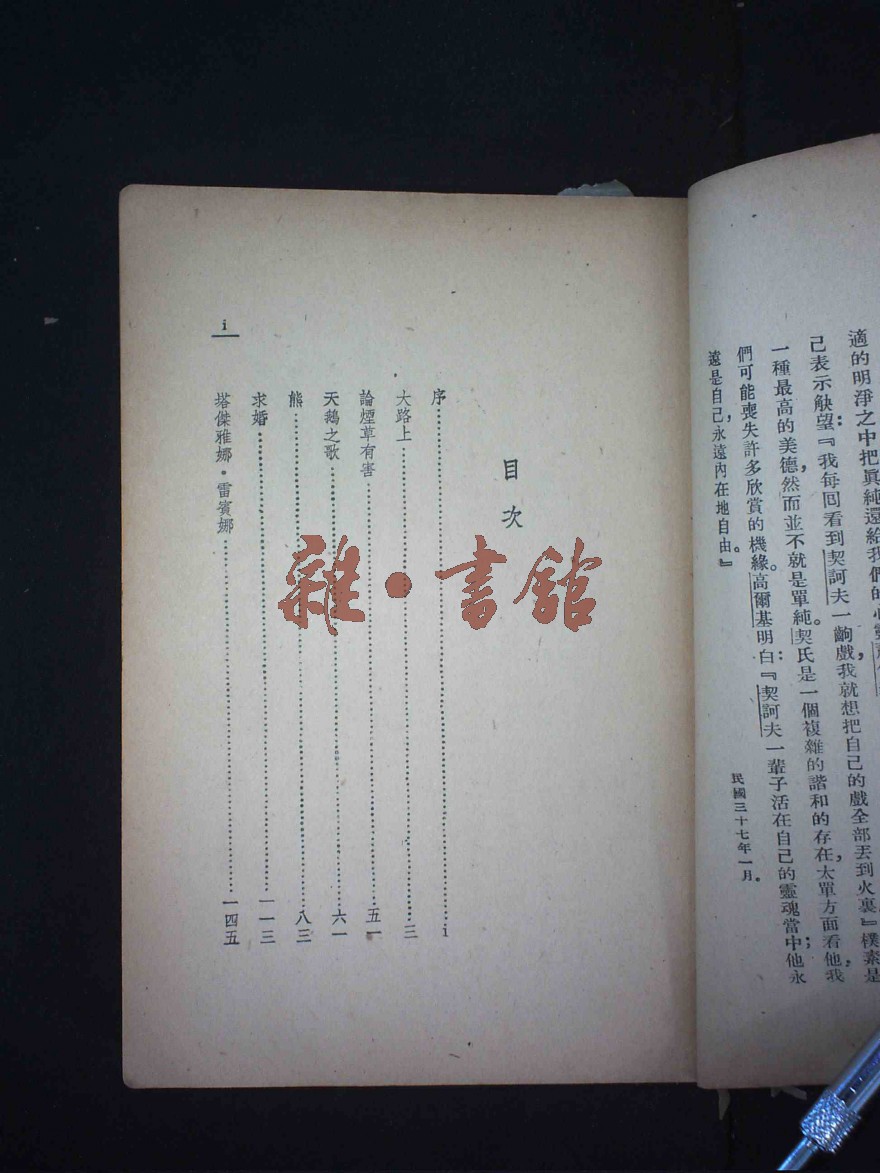 適的明淨之中把眞純還給我們的心靈
己表示觖望：『我每囘看到契訶夫一齣戲，我就想把自己的戲全部丟到火裏。』樸素是
一種最高的美德，然而並不就是單純。契氏是一個複雜的諧和的存在，太單方面看他，我
們可能喪失許多欣賞的機緣。高爾基明白：『契訶夫一輩子活在自己的靈魂當中；他永
遠是自己，永遠內在地自由。』
民國三十七年一月。
目次
序……i
大路上……三
論煙草有害……五一
天鵝之歌……六一
熊……八三
求婚……一一三
塔傑雅娜·雷賓娜……一四五
i
雜·書館